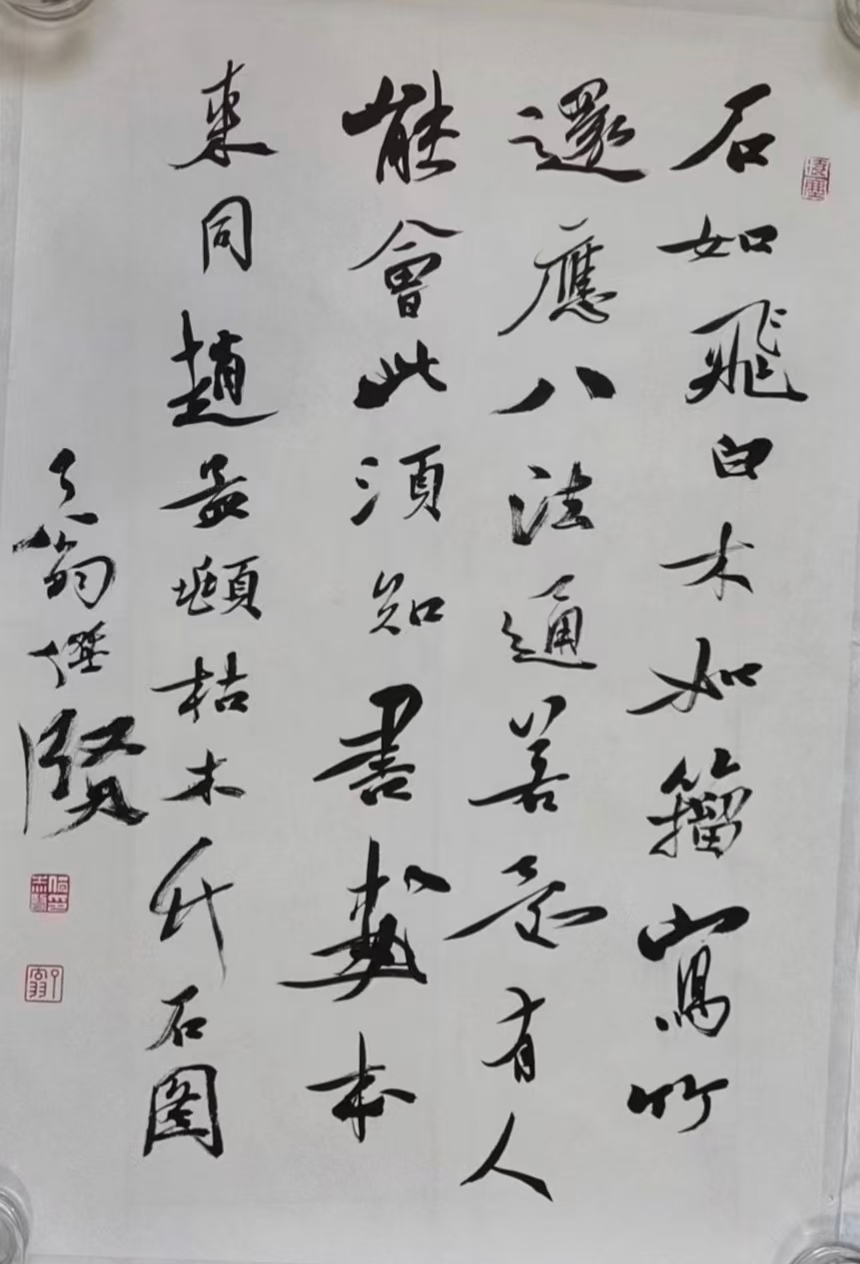 石如飛白木如籕寫竹
還應八法通若有人
能會此須知書畫本
來同趙孟頫枯木竹石圖
了翁賢
了翁